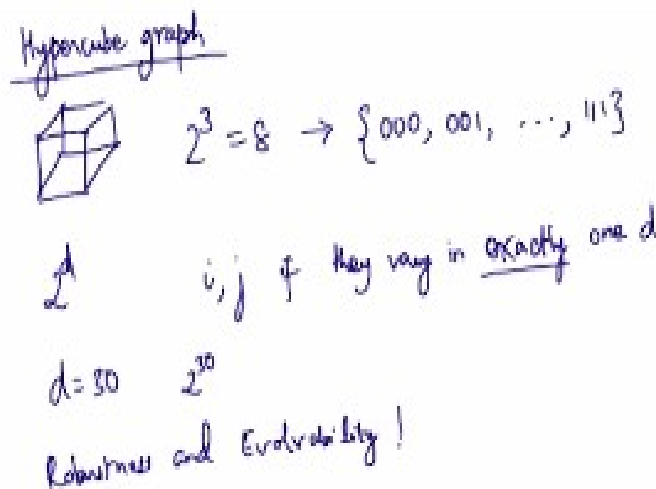 Hypercube graph
2^3 = 8 → {000, 001, ..., 111}
2^d i, j if they vary in exactly one d
d = 30 2^30
Robustness and Evolvability!